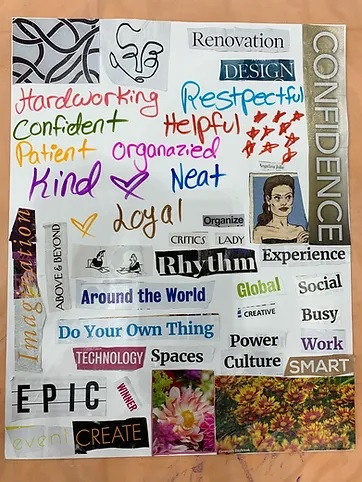 Renovation
DESIGN
CONFIDENCE
Hardworking
Restpectful
Confident
Helpful
Patient
Organazied
Kind
Neat
Loyal
Organize
Imagination
ABOVE & BEYOND
CRITICS
LADY
Rhythm
Experience
Around the World
Global
Social
CREATIVE
Busy
Do Your Own Thing
Power
Work
TECHNOLOGY
Spaces
Culture
SMART
EPIC
WINNER
event
CREATE